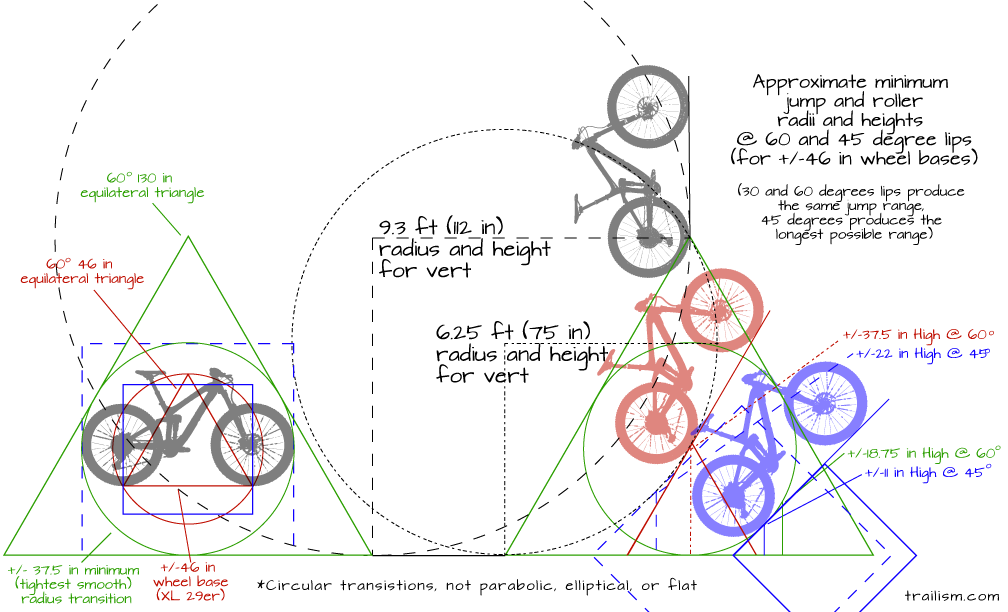 Approximate minimum
jump and roller
radii and heights
@ 60 and 45 degree lips
(for +/-46 in wheel bases)
(30 and 60 degrees lips produce
the same jump range,
45 degrees produces the
longest possible range)
60° 130 in
equilateral triangle
60° 46 in
equilateral triangle
9.3 ft (112 in)
radius and height
for vert
6.25 ft (75 in)
radius and height
for vert
+/-37.5 in High @ 60°
+/-22 in High @ 45°
+/-18.75 in High @ 60°
+/-11 in High @ 45°
+/- 37.5 in minimum
(tightest smooth)
radius transition
+/-46 in
wheel base
(XL 29er)
*Circular transistions, not parabolic, elliptical, or flat
trailism.com